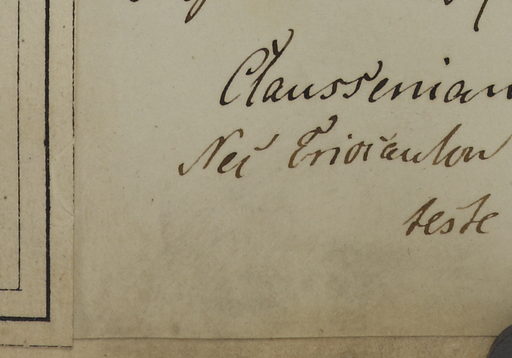 Claussenian
Nec Eriocaulon
teste